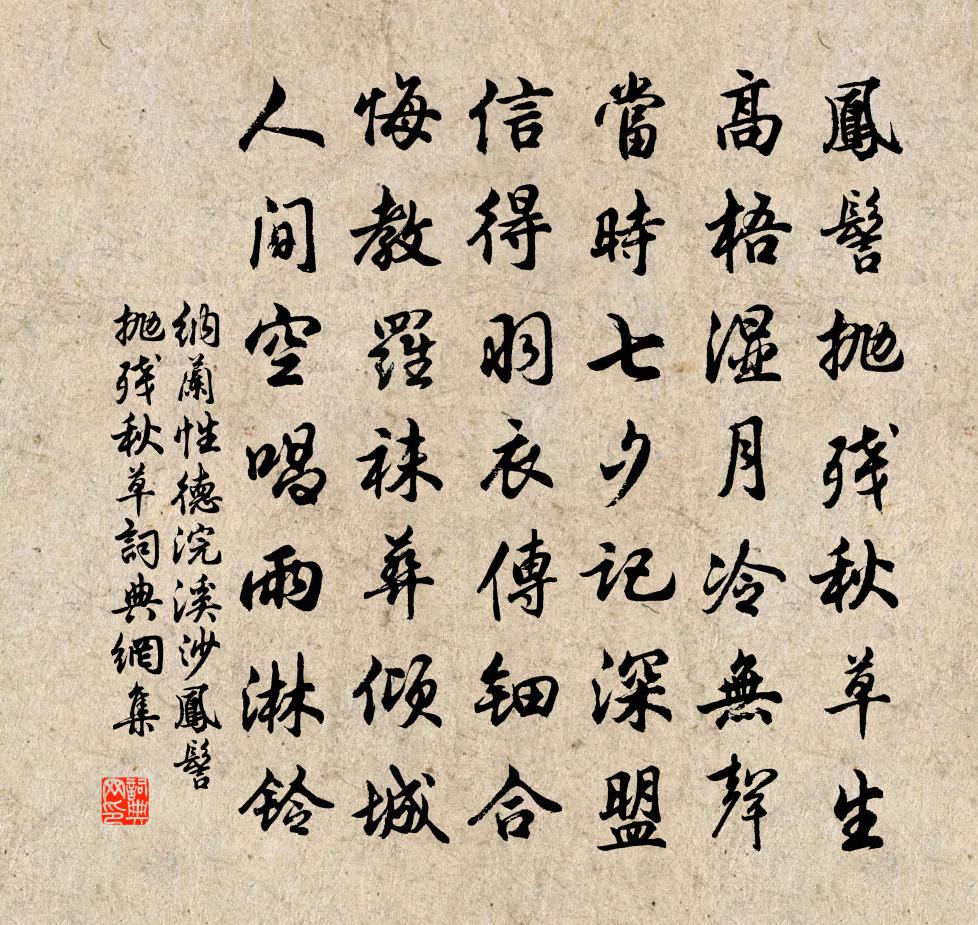 鳳髻抛残秋草生
高梧濕月冷無聲
當時七夕記深盟
信得羽衣傳鈿合
悔教羅袜葬傾城
人間空唱雨淋鈴
納蘭性德浣溪沙鳳髻
抛残秋草詞典網集
詞典
网印